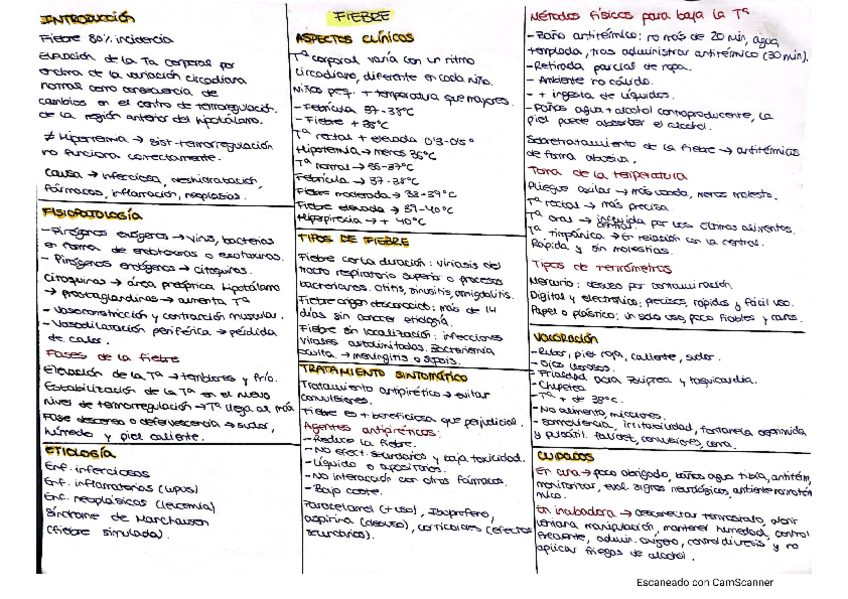 FIEBRE
INTRODUCCIÓN
Fiebre 80% incidencia
Elevación de la Ta corporal por
encima de la variación circadiana
normal como consecuencia de
cambios en el centro de termorregulación
de la región anterior del hipotálamo.
≠ Hipertermia → sist. termorregulación
no funciona correctamente.
Causa → infecciosa, deshidratación,
fármacos, inflamación, neoplasias.
FISIOPATOLOGÍA
- Pirógenos exógenos → virus, bacterias
en forma de endotoxinas o exotoxinas.
- Pirógenos endógenos → citoquinas.
Citoquinas → área preóptica hipotálamo
→ prostaglandinas → aumenta Tª
- Vasoconstricción y contracción muscular.
- Vasodilatación periférica → pérdida
de calor.
Fases de la fiebre
Elevación de la Tª → temblores y frío.
Estabilización de la Tª en el nuevo
nivel de termorregulación → Tª llega al máx
Fase descenso o defervescencia → sudor,
húmedo y piel caliente.
ETIOLOGÍA
Enf. infecciosos
Enf. inflamatorias (lupus)
Enf. neoplásicas (leucemia)
Síndrome de Münchausen
(fiebre simulada).
ASPECTOS CLÍNICOS
Tª corporal varía con un ritmo
circadiano, diferente en cada niño.
Niños peq. + temperatura que mayores.
- Febrícula 37-38ºC
- Fiebre + 38ºC
Tª rectal + elevada 0'3-0'5º
Hipotermia → menos 36ºC
Tª normal → 36-37ºC
Febrícula → 37-38ºC
Fiebre moderada → 38-39ºC
Fiebre elevada → 39-40ºC
Hiperpirexia → + 40ºC
TIPOS DE FIEBRE
Fiebre corta duración: viriasis del
tracto respiratorio superior o procesos
bacterianos. Otitis, sinusitis, amigdalitis.
Fiebre origen desconocido: más de 14
días sin conocer etiología.
Fiebre sin localización: infecciones
virales autolimitadas. Bacteriemia
oculta → meningitis o sepsis.
TRATAMIENTO SINTOMÁTICO
Tratamiento antipirético → evitar
convulsiones.
Fiebre es + beneficiosa que perjudicial.
Agentes antipiréticos:
- Reduce la fiebre.
- No efect. secundarios y baja toxicidad.
- Líquido o supositorios.
- No interacción con otros fármacos.
- Bajo coste.
Paracetamol (+ uso), Ibuprofeno,
aspirina (desuso), corticoides (efectos
secundarios).
Métodos físicos para baja la Tª
- Baño antitérmico: no más de 20 min, agua
templada, tras administrar antitérmico (30 min).
- Retirada parcial de ropa.
- Ambiente no cálido.
- + ingesta de líquidos.
- Paños agua + alcohol contraproducente, la
piel puede absorber el alcohol.
Sobretratamiento de la fiebre → antitérmicos
de forma abusiva.
Toma de la temperatura
Pliegue axilar → más usada, menos molesto.
Tª rectal → más precisa.
Tª oral → influida por los últimos alimentos.
Tª timpánica → En relación con la central.
Rápida y sin molestias.
Tipos de termómetros
Mercurio: desuso por contaminación.
Digital y electrónico: precisos, rápidos y fácil uso.
Papel o plástico: un solo uso, poco fiables y caros.
VALORACIÓN
- Rubor, piel roja, caliente, sudor.
- Ojos llorosos.
- Chupetea
- Tª + de 38ºC.
- No alimento, micciones.
- Somnolencia, irritabilidad, fontanela deprimida
y pulsátil. convulsiones, coma.
CUIDADOS
En cuna → poco abrigado, baños agua tibia, antitérm,
monitorizar, eval. signos neurológicos, ambiente
En incubadora → desconectar termostato, abrir
ventana manipulación, mantener humedad, control
frecuente, admin. oxígeno, control diuresis y no
aplicar friegas de alcohol.
Escaneado con CamScanner